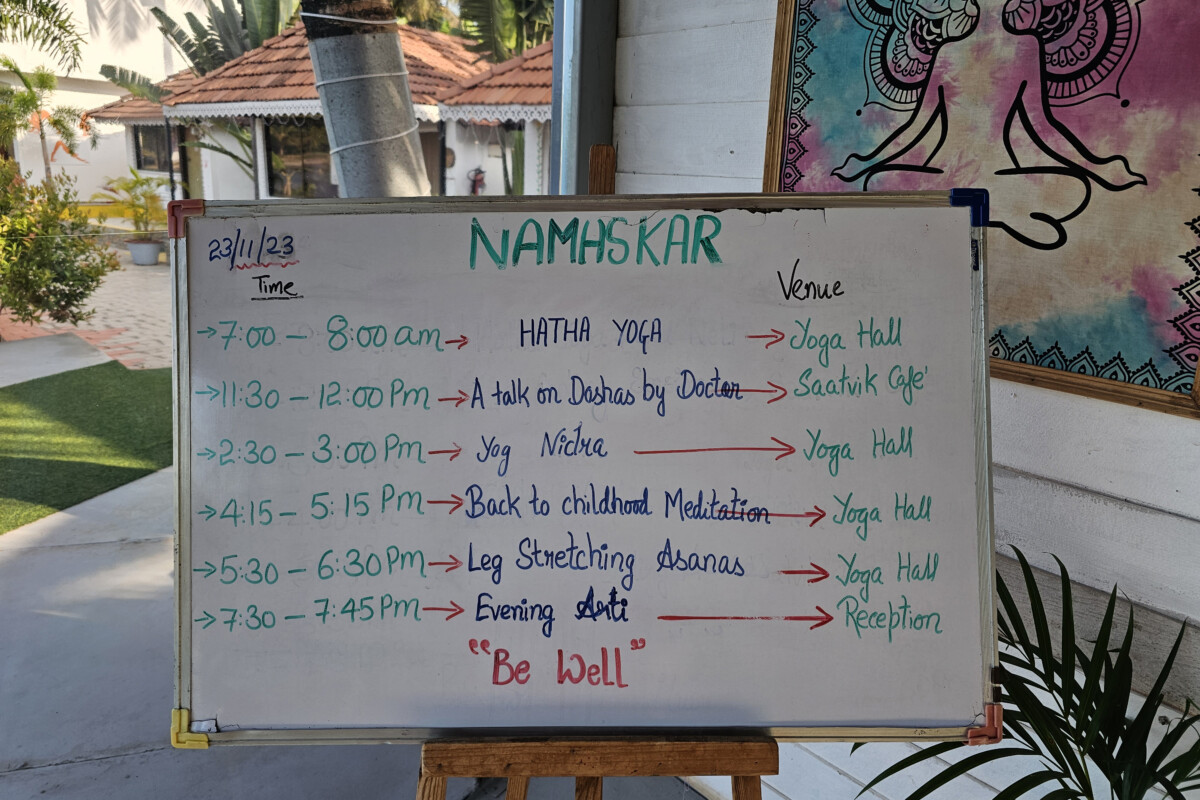 NAMHSKAR
23/11/23
Time Venue
→7:00 – 8:00 am→ HATHA YOGA → Yoga Hall
→11:30 – 12:00 Pm→ A talk on Doshas by Doctor → Saatvik Café
→2:30 – 3:00 Pm→ Yog Nidra → Yoga Hall
→4:15 – 5:15 Pm→ Back to childhood Meditation → Yoga Hall
→5:30 – 6:30 Pm→ Leg Stretching Asanas → Yoga Hall
→7:30 – 7:45 Pm→ Evening Arti → Reception
"Be Well"